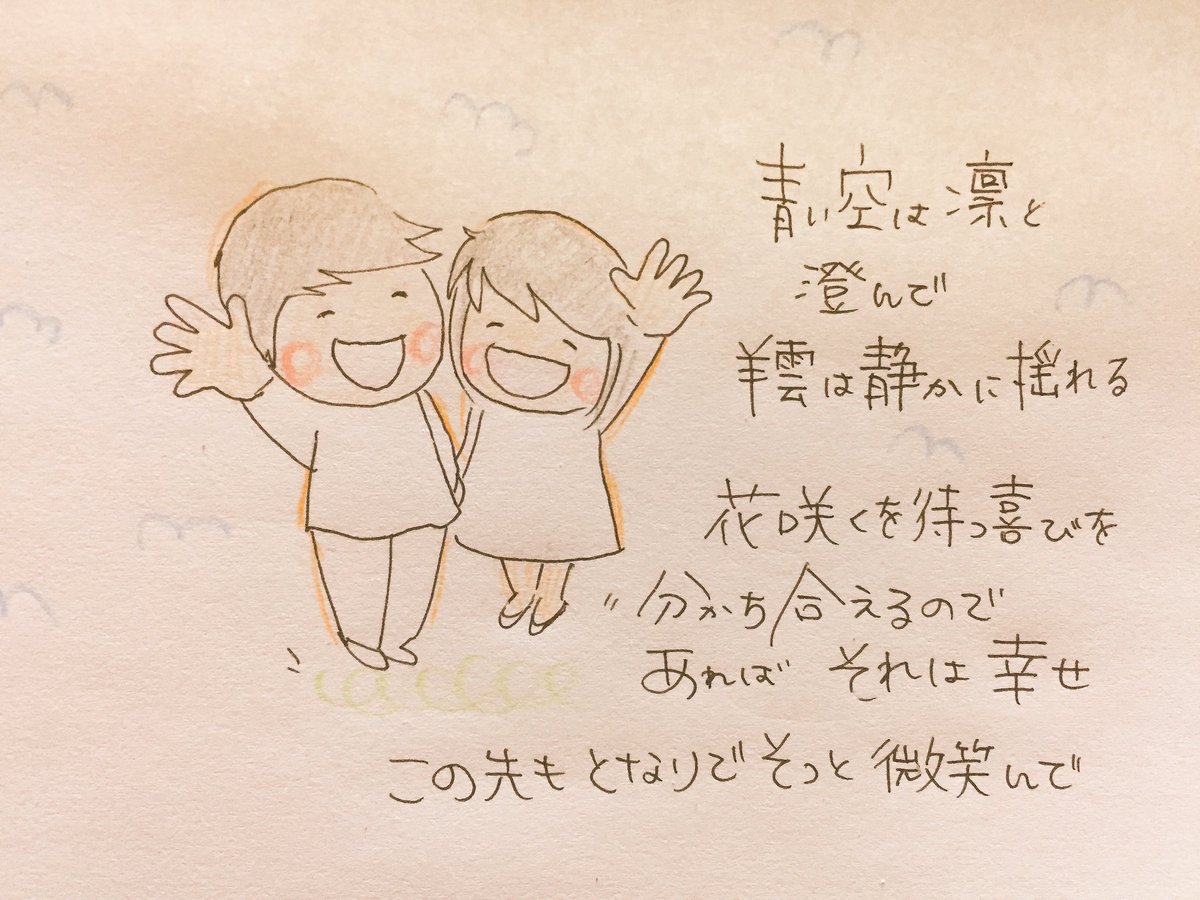 青い空は凛と
澄んで
羊雲は静かに揺れる
花咲くを待つ喜びを
分かち合えるので
あれば それは幸せ
この先も となりで そっと 微笑んで